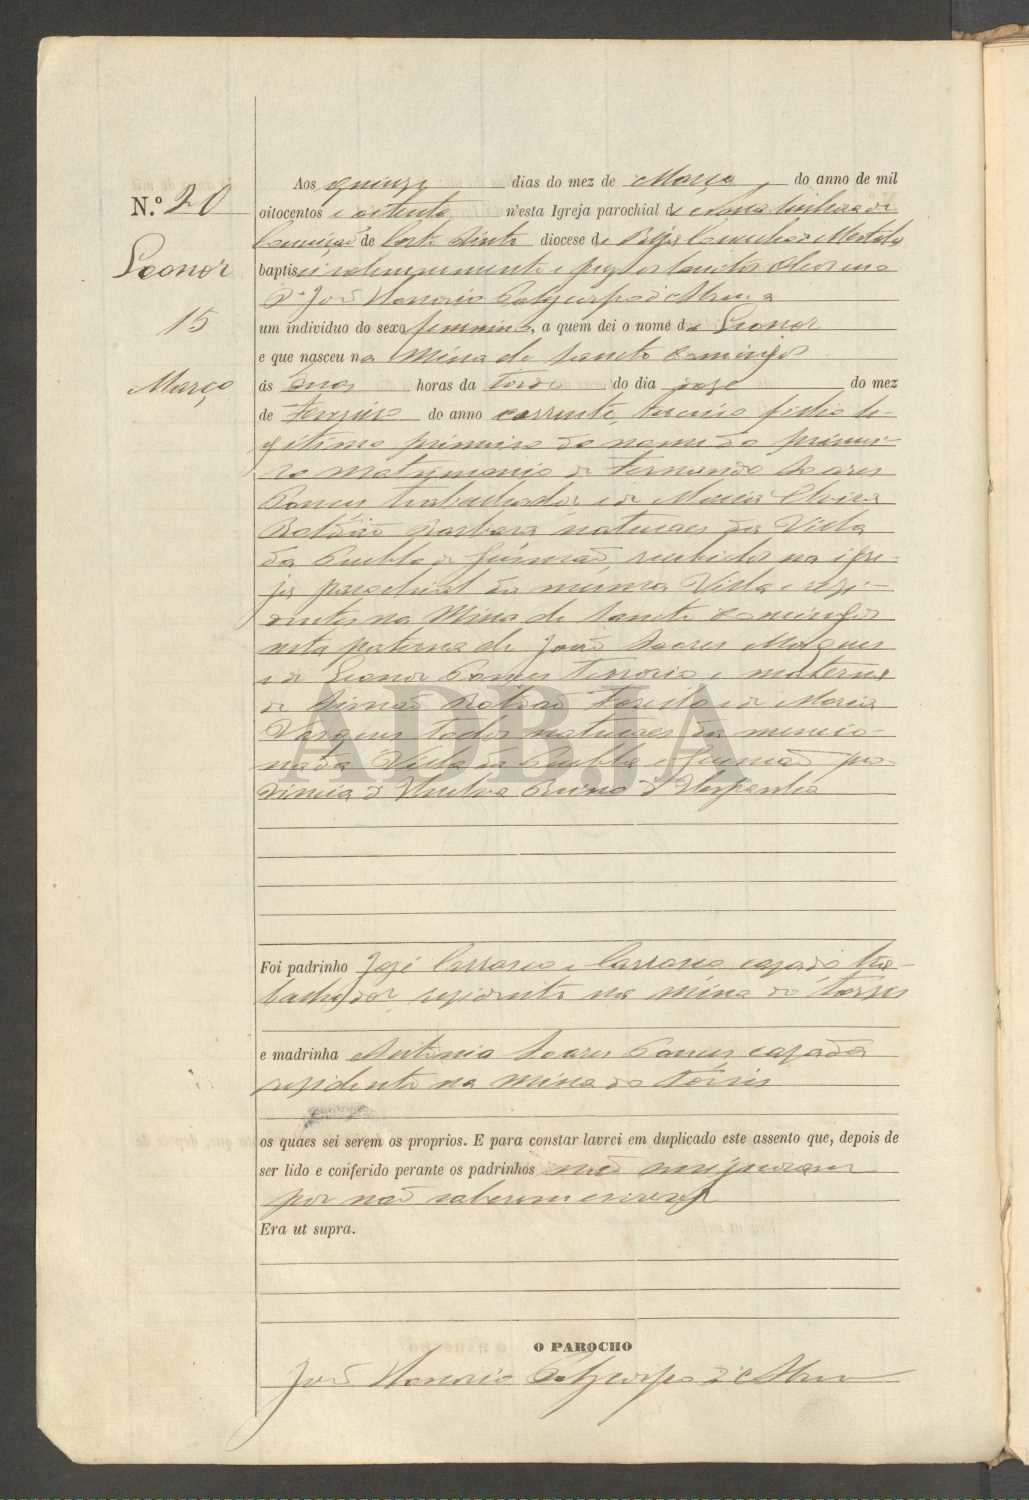 N.º 20
Leonor
15
Março
Aos quinze dias do mez de Março do anno de mil
oitocentos e oitenta n'esta Igreja parochial de Nossa Senhora da
Conceição de Corte do Pinto diocese de Beja Concelho de Mertola
baptisei solemnemente e puz os sanctos oleos eu o
Pe João Honorio Polycarpo d'Abreu a
um individuo do sexo feminino, a quem dei o nome de Leonor
e que nasceu na Mina de Sancto Domingos
ás onze horas da tarde do dia do mez
de Fevereiro do anno corrente, filha le-
gitima primeira do nome do primei-
ro matrimonio de Fernando Soares
Ponces trabalhador e de Maria
Roldão Barbara naturaes da Villa
da Puebla de Gusmão recebidos na igre-
ja parochial da mesma Villa e rezi-
dentes na Mina de Sancto Domingos
neta paterna de João Soares Marques
e de Leonor Ponces Tenorio e materna
de Simão Roldão e de Maria
Vasques todos naturaes da mencio-
nada Villa da Puebla de Gusmão pro-
vincia d'Huelva Reino d'Hespanha
Foi padrinho José Carrasco e Carrasco cazado tra-
balhador rezidente na mina do
e madrinha Antonia Soares Ponces cazada
rezidente na Mina do
os quaes sei serem os proprios. E para constar lavrei em duplicado este assento que, depois de
ser lido e conferido perante os padrinhos não assignaram
por não saberem escrever
Era ut supra.
O PAROCHO
João Honorio Polycarpo d'Abreu
ADBJA